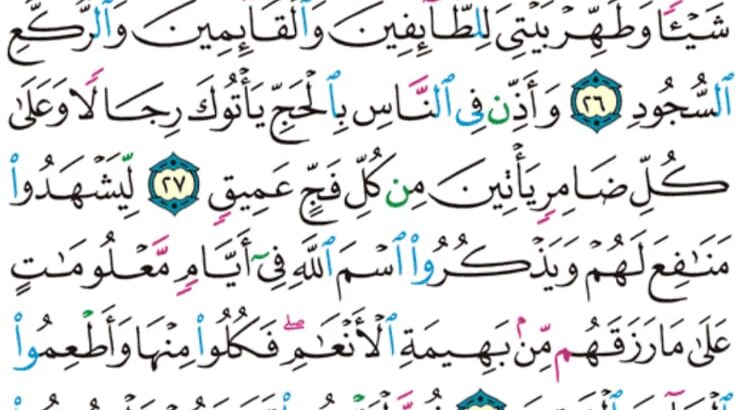 شَيْـًٔا وَطَهِّرْ بَيْتِىَ لِلطَّآئِفِينَ وَٱلْقَآئِمِينَ وَٱلرُّكَّعِ
ٱلسُّجُودِ ٢٦ وَأَذِّن فِى ٱلنَّاسِ بِٱلْحَجِّ يَأْتُوكَ رِجَالًا وَعَلَىٰ
كُلِّ ضَامِرٍ يَأْتِينَ مِن كُلِّ فَجٍّ عَمِيقٍ ٢٧ لِّيَشْهَدُوا۟
مَنَـٰفِعَ لَهُمْ وَيَذْكُرُوا۟ ٱسْمَ ٱللَّهِ فِىٓ أَيَّامٍ مَّعْلُومَـٰتٍ
عَلَىٰ مَا رَزَقَهُم مِّنۢ بَهِيمَةِ ٱلْأَنْعَـٰمِ ۖ فَكُلُوا۟ مِنْهَا وَأَطْعِمُوا۟